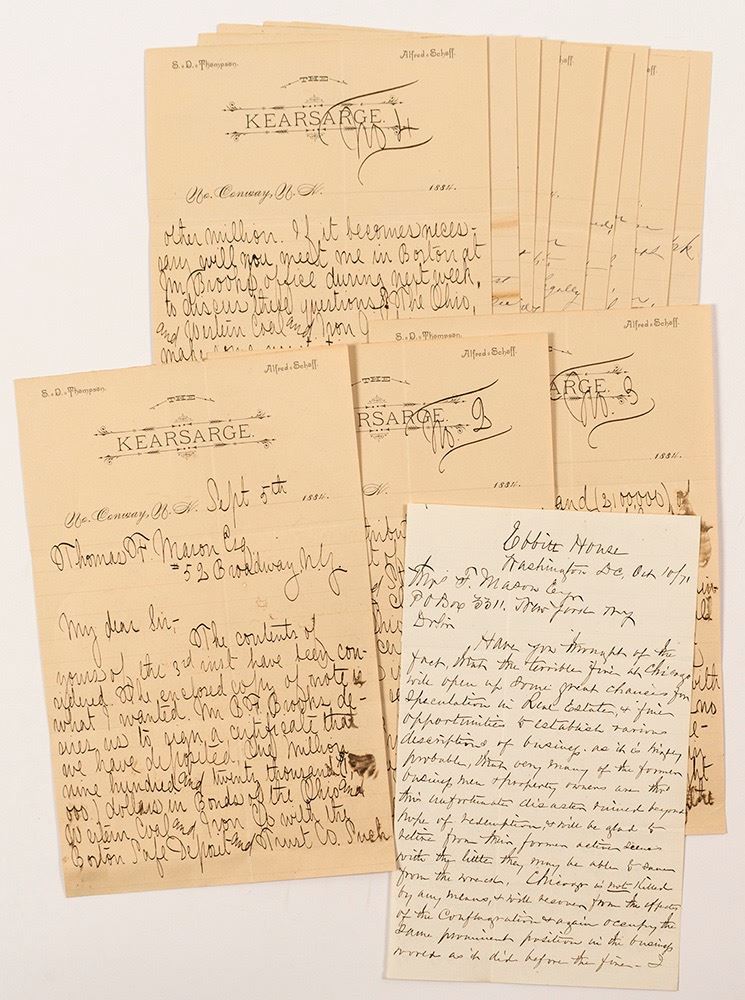 S. D. Thompson. Alfred Schoff.
THE
KEARSARGE.
No 4
No. Conway, N. H. 1884.
other million. If it becomes neces-
sary will you meet me in Boston at
Mr Brooks office during next week,
to discuss these questions? The Ohio,
and Western Coal and Iron
hoff.
off.
S. D. Thompson. Alfred Schoff.
THE
KEARSARGE.
No. Conway, N. H. Sept 5th 1884.
Thomas F. Mason Esq
#52 Broadway, N.Y.
My dear Sir,- The contents of
yours of the 3rd inst have been con-
sidered. The enclosed copy of note is
what I wanted. Mr B.F. Brooks de-
sires us to sign a certificate that
we have deposited, One Million
nine hundred and twenty thousand (
000) dollars in Bonds of the Ohio and
Western Coal and Iron Co with the
Boston Safe Deposit and Trust Co. Such
S. D. Thompson. Alfred Schoff.
THE
RSARGE
No. 2
N. H. 1884.
Alfred Schoff.
ARGE.
No. 3
1884.
and (2,100,000)
with
no
Ebbitt House
Washington DC, Oct 10/71
Thos F. Mason Esqr
PO Box 3311. New York NY
Dr Sir
Have you thought of the
fact, that the terrible fire at Chicago
will open up some great chances for
speculation in Real Estate, & fine
opportunities to establish various
descriptions of business. as it is highly
probable, that very many of the former
business men & property owners are thro
this unfortunate disaster ruined beyond
hope of redemption, & will be glad to
retire from their former active scenes
with the little they may be able to save
from the wreck. Chicago is not killed
by any means, & will recover from the effects
of the Conflagration & again occupy the
same prominent position in the business
world as it did before the fire - I